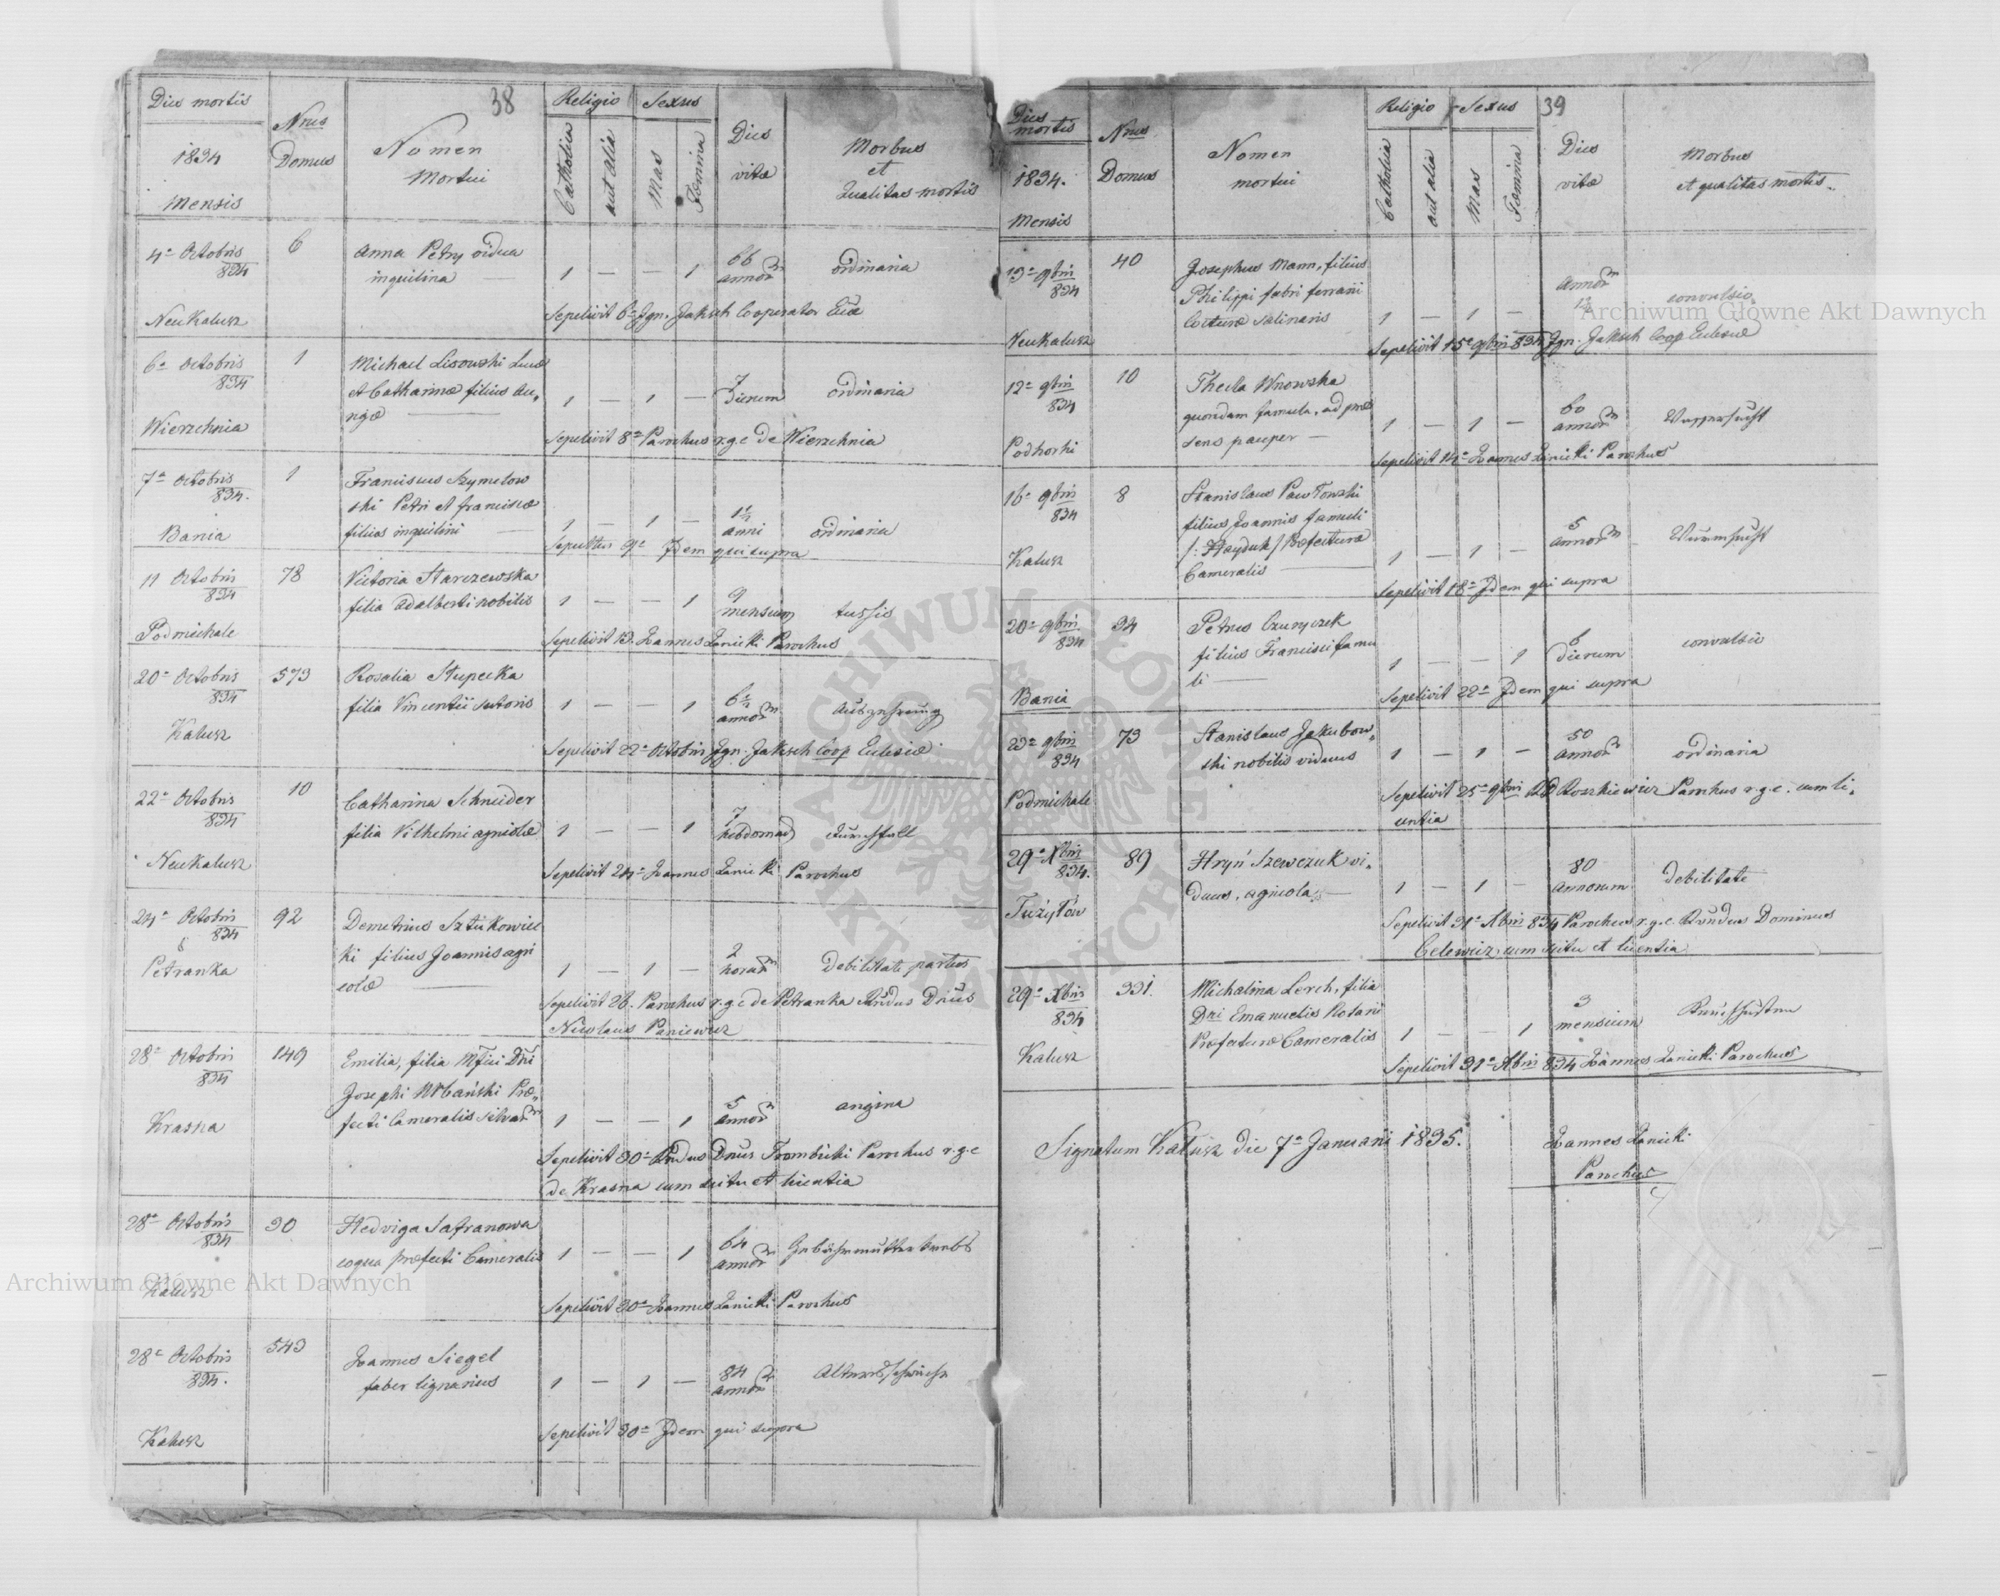 38
Dies mortis
1834
Mensis
Nrus
Domus
Nomen
Mortui
Religio
Catholica
aut alia
Sexus
Mas
Fœmina
Dies
vitæ
Morbus
et
Qualitas mortis
4ª Octobris
834
NeuKalusz
6
Anna Petry vidua
inquilina
1 — — 1
66
annor
ordinaria
Sepelivit 6ª Ign. Jaksch Cooperator Eccæ
6ª Octobris
834
Wierzchnia
1
Michael Lisowski Lucæ
et Catharinæ filius
1 — 1 —
7
dierum
ordinaria
Sepelivit 8ª Parochus r.g.c de Wierzchnia
7ª Octobris
834.
Bania
1
Franciscus Szymelow
ski Petri et Franciscæ
filius inquilini
1 — 1 —
anni
ordinaria
Sepultus 9ª Idem qui supra
11 Octobris
834
Podmichale
78
Victoria Starczewska
filia Adalberti nobilis
1 — — 1
9
mensium
tussis
Sepelivit 13. Joannes Łanicki Parochus
20ª Octobris
834
Kalusz
573
Rosalia Stupecka
filia Vincentii sutoris
1 — — 1
annor
Auszehrung
Sepelivit 22ª Octobris Ign. Jaksch Coop Ecclesiæ
22ª Octobris
834
NeuKalusz
10
Catharina Schneider
filia Vilhelmi agricolæ
1 — — 1
7
hebdomad
Durchfall
Sepelivit 24ª Joannes Łanicki Parochus
24ª Octobris
834
Petranka
92
Demetrius Sztukowiec
ki filius Joannis agri
colæ
1 — 1 —
2
horar
Debilitate partus
Sepelivit 26. Parochus r.g.c de Petranka Rndus Dnus
Nicolaus Paniewicz
28ª Octobris
834
Krasna
149
Emilia, filia Mfici Dni
Josephi Urbański Præ
fecti Cameralis silvar
1 — — 1
5
annor
angina
Sepelivit 30ª Rndus Dnus Trembicki Parochus r.g.c
de Krasna cum scitu et licentia
28ª Octobris
834
Kalusz
30
Hedviga Safranowa
coqua præfecti Cameralis
1 — — 1
64
annor
Gebährmutterkrebs
Sepelivit 30ª Joannes Łanicki Parochus
28ª Octobris
834.
Kalusz
543
Joannes Siegel
faber lignarius
1 — 1 —
84
annor
Altersschwäche
Sepelivit 30ª Idem qui supra
39
Dies
mortis
1834.
Mensis
Nrus
Domus
Nomen
mortui
Religio
Catholica
aut alia
Sexus
Mas
Fœmina
Dies
vitæ
Morbus
et qualitas mortis
13ª 9bris
834
NeuKalusz
40
Josephus Mann, filius
Philippi fabri ferrarii
Cocturæ salinaris
1 — 1 —
annor
convulsio
Sepelivit 15ª 9bris 834 Ign. Jaksch Coop Ecclesiæ
12ª 9bris
834
Podhorki
10
Thecla Wnowska
quondam famula, ad præ
sens pauper
1 — 1 —
60
annor
Wassersucht
Sepelivit 14ª Joannes Łanicki Parochus
16ª 9bris
834
Kalusz
8
Stanislaus Pawłowski
filius Joannis famuli
/: Hayduk / Præfecturæ
Cameralis
1 — 1 —
5
annor
Wurmsucht
Sepelivit 18ª Idem qui supra
20ª 9bris
834
Bania
34
Petrus Czuryczek
filius Francisci famu
li
1 — — 1
6
dierum
convulsio
Sepelivit 22ª Idem qui supra
23ª 9bris
834
Podmichale
73
Stanislaus Jakubow
ski nobilis viduus
1 — 1 —
50
annor
ordinaria
Sepelivit 25ª 9bris Roszkiewicz Parochus r.g.c. cum li
centia
29ª Xbris
834.
Tużyłów
89
Hryń Szewczuk vi
duus, agricola
1 — 1 —
80
Annorum
Debilitate
Sepelivit 31ª Xbris 834 Parochus r.g.c. Rndus Dominus
Celewicz cum scitu et licentia
29ª Xbris
834
Kalusz
331.
Michalina Lerch, filia
Dni Emanuelis
Præfecturæ Cameralis
1 — — 1
3
mensium
Sepelivit 31ª Xbris 834 Joannes Łanicki Parochus
Signatum Kalusz die 7ª Januarii 1835.
Joannes Łanicki
Parochus
Archiwum Główne Akt Dawnych
Archiwum Główne Akt Dawnych
ARCHIWUM GŁÓWNE AKT DAWNYCH